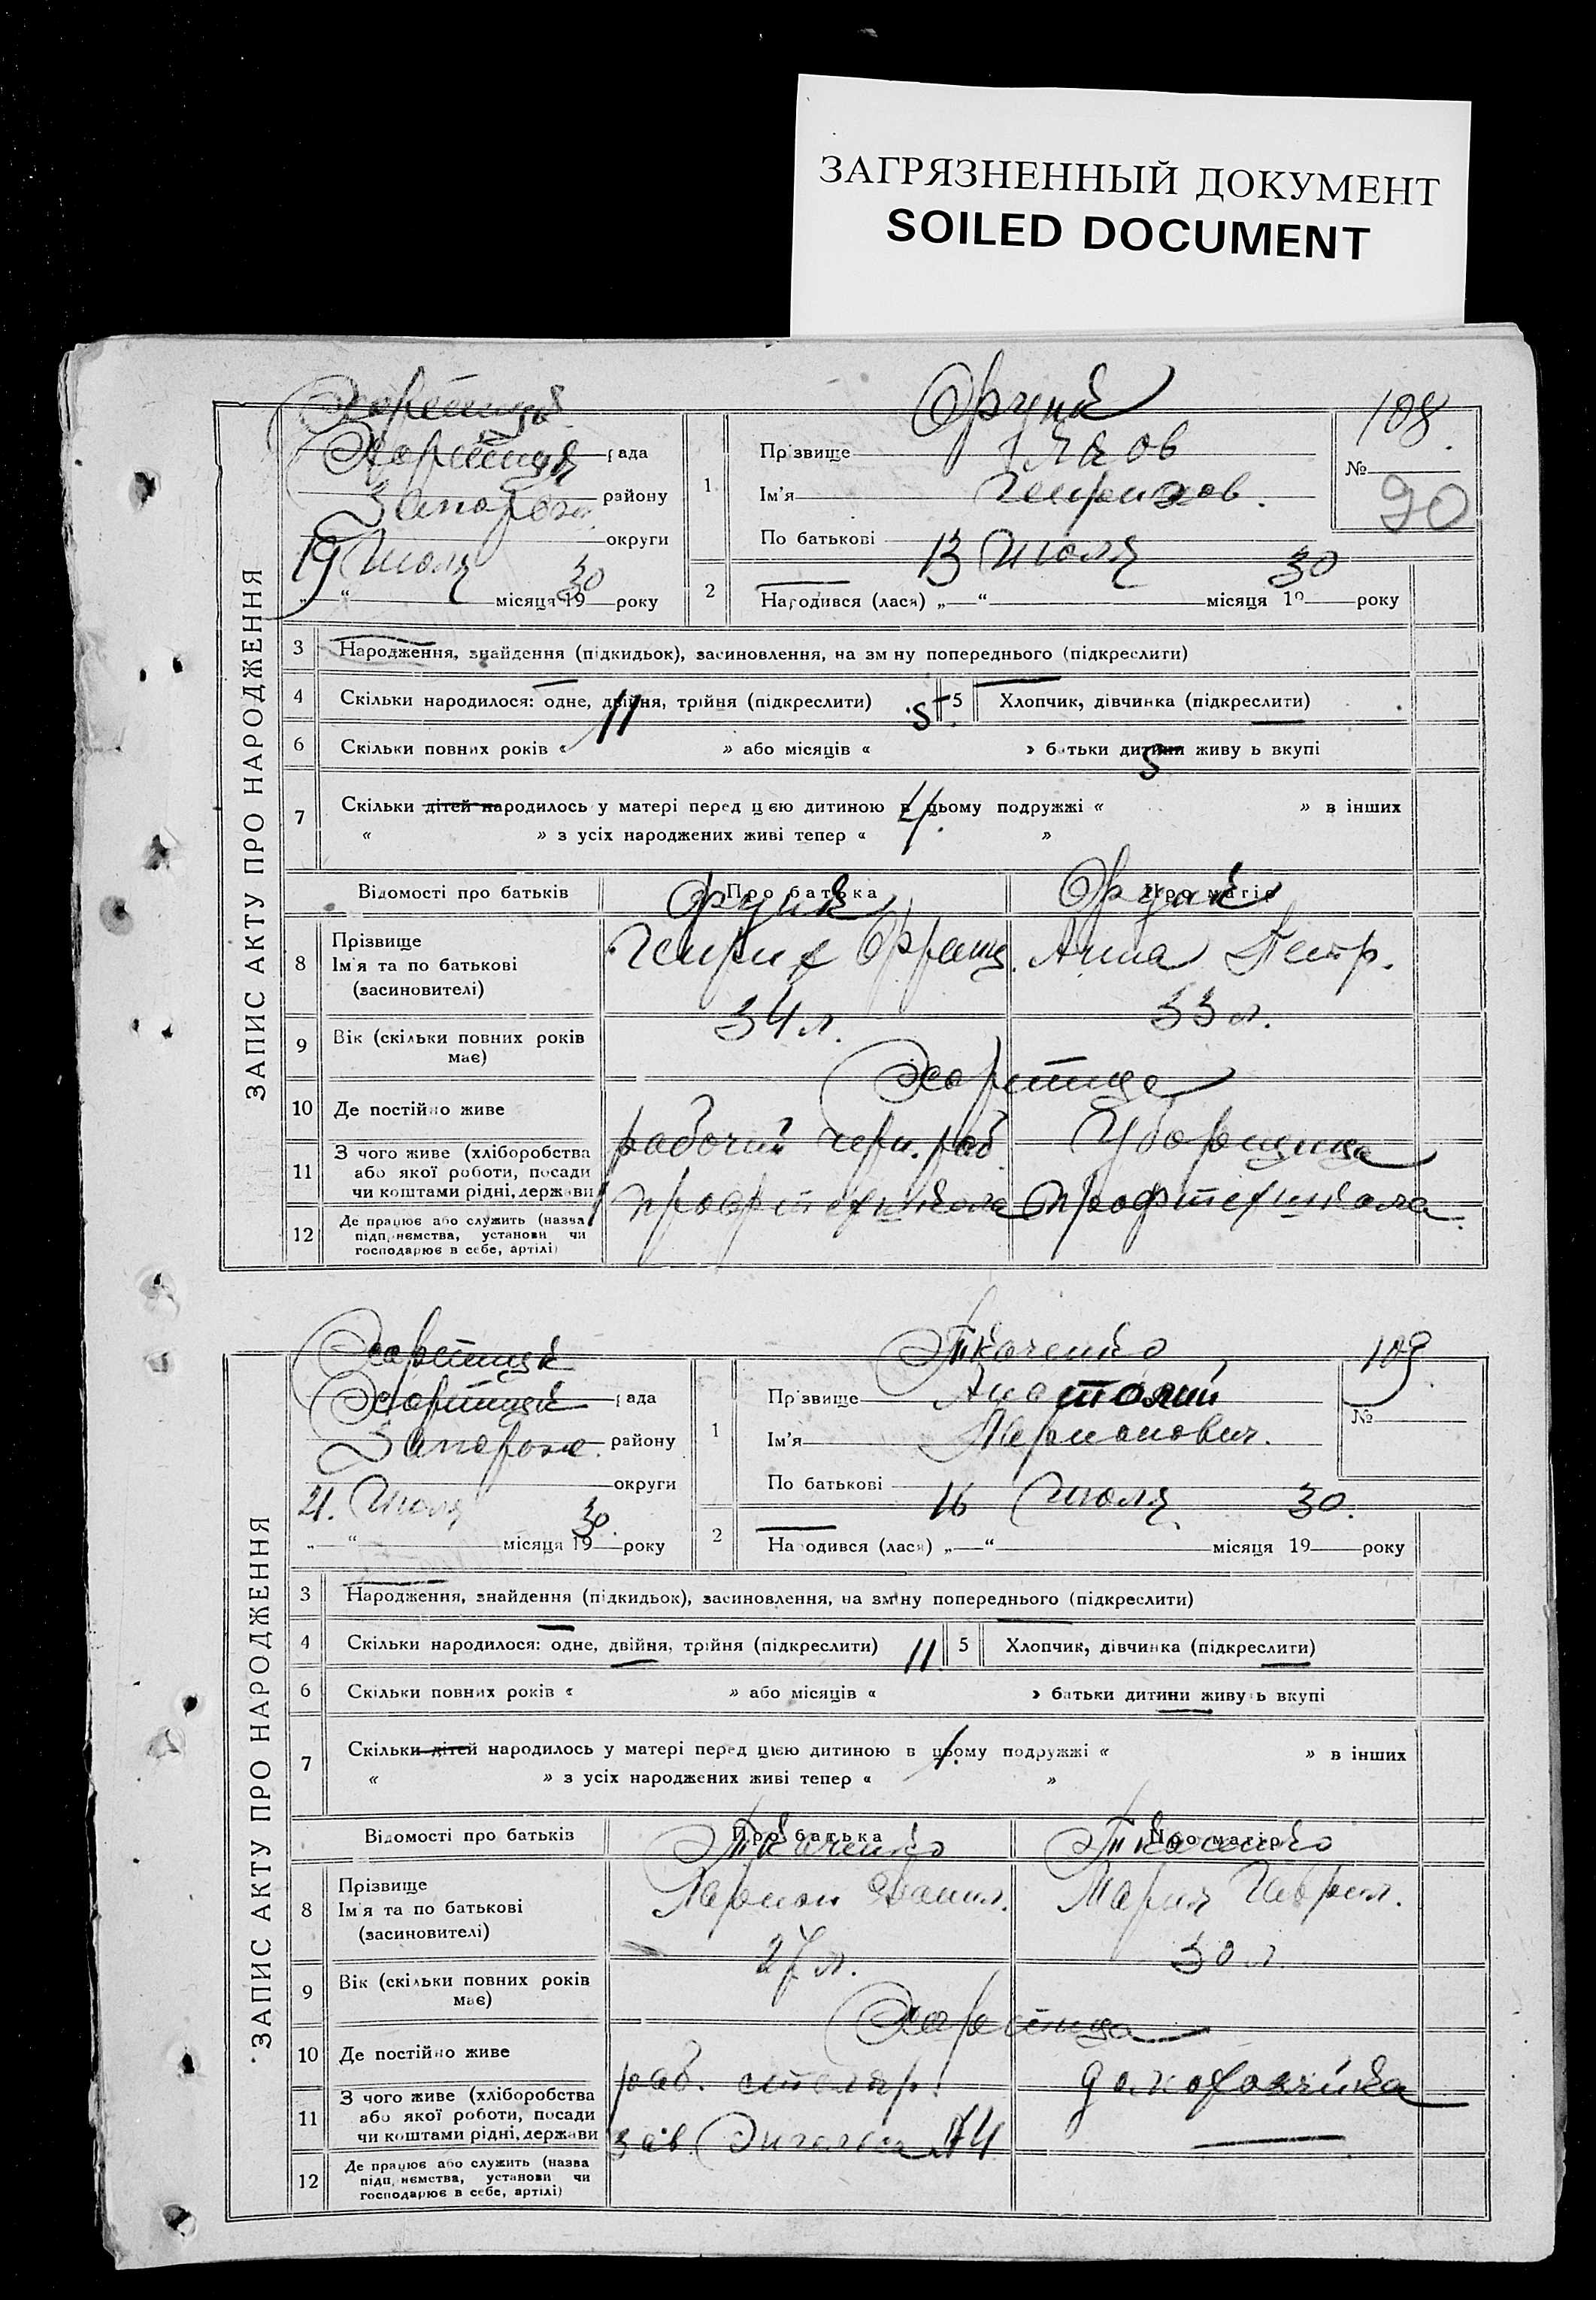 ЗАГРЯЗНЕННЫЙ ДОКУМЕНТ
SOILED DOCUMENT
ЗАПИС АКТУ ПРО НАРОДЖЕННЯ
Хортицк
Хортицк рада
Запорож. району
округи
19 Июля місяця 1930 року
1
Прізвище
Яков
Ім'я Генрихов.
По батькові
108
№
90
2 Народився (лася) „13“ Июля місяця 1930 року
3 Народження, знайдення (підкидьок), засиновлення, на зміну попереднього (підкреслити)
4 Скільки народилося: одне, двійня, трійня (підкреслити) 5 Хлопчик, дівчинка (підкреслити)
6 Скільки повних років « 11 » або місяців « 5 » батьки дитини живуть вкупі
7 Скільки дітей народилось у матері перед цією дитиною в цьому подружжі « 5 » в інших
« » з усіх народжених живі тепер « 4. »
Відомості про батьків Про батька Про матір
8 Прізвище
Ім'я та по батькові Генрих Франц. Анна Петр.
(засиновителі)
9 Вік (скільки повних років має) 34 л. 33 л.
10 Де постійно живе Хортица
11 З чого живе (хліборобства або якої роботи, посади чи коштами рідні, держави) рабочий черн. раб. Уборщица
12 Де працює або служить (назва підприємства, установи чи господарює в себе, артілі) профтехшкола профтехшкола
ЗАПИС АКТУ ПРО НАРОДЖЕННЯ
Хортицк
Хортицк рада
Запорож. району
округи
21. Июля місяця 1930. року
1
Ткаченко
Прізвище Анатолий
Ім'я Ларионович.
По батькові
109
№
2 Народився (лася) „16“ Июля місяця 1930. року
3 Народження, знайдення (підкидьок), засиновлення, на зміну попереднього (підкреслити)
4 Скільки народилося: одне, двійня, трійня (підкреслити) 5 Хлопчик, дівчинка (підкреслити)
6 Скільки повних років « » або місяців « 11 » батьки дитини живуть вкупі
7 Скільки дітей народилось у матері перед цією дитиною в цьому подружжі « » в інших
« » з усіх народжених живі тепер « 1. »
Відомості про батьків Про батька Про матір
Ткаченко Ткаченко
8 Прізвище
Ім'я та по батькові Ларион Данил. Мария Гаврил.
(засиновителі)
9 Вік (скільки повних років має) 27 л. 30 л.
10 Де постійно живе Хортица
11 З чого живе (хліборобства або якої роботи, посади чи коштами рідні, держави раб. столяр. домохозяйка
12 Де працює або служить (назва підприємства, установи чи господарює в себе, артілі) зав. Энгельса №4